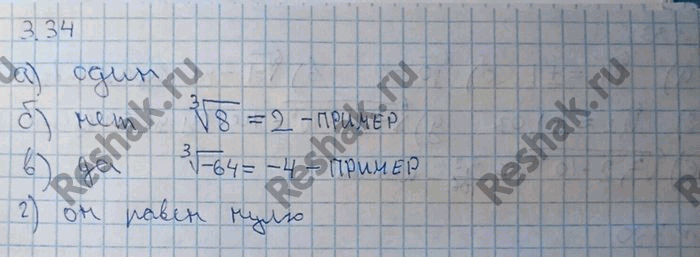 3.34
а) один
б) нет ∛8 = 2 - ПРИМЕР
в) да ∛-64 = -4 - ПРИМЕР
г) он равен нулю
Reshak.ru
Reshak.ru
Reshak.ru
Reshak.ru